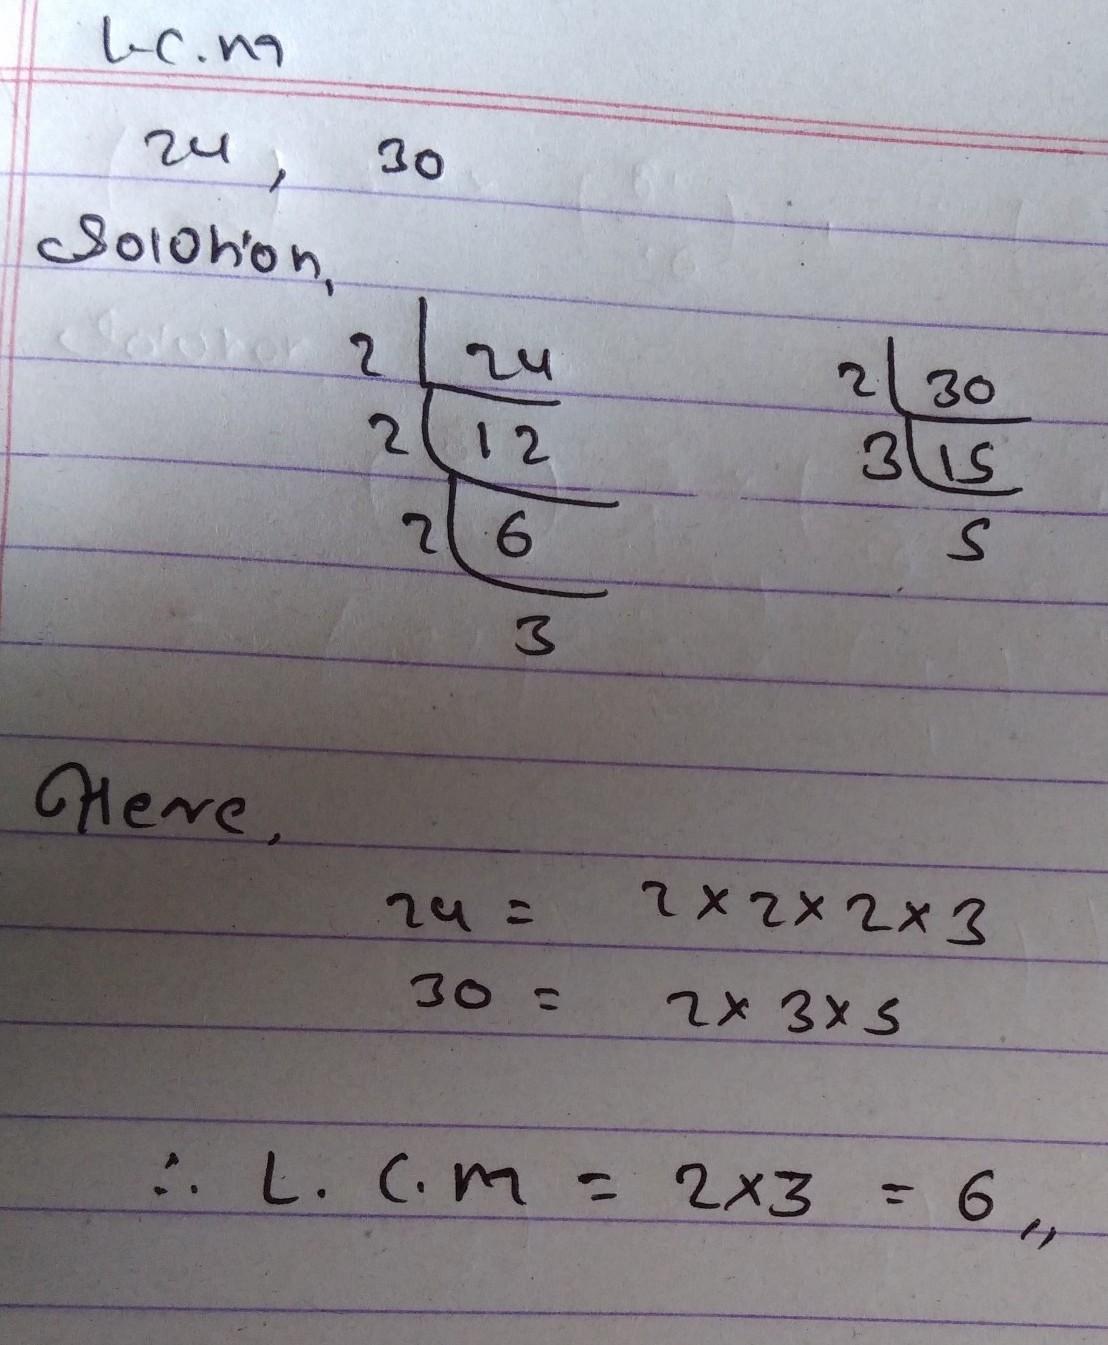 L.C.M
24, 30
Solution,
2 24 2 30
2 12 3 15
2 6 5
3
Here,
24 = 2 × 2 × 2 × 3
30 = 2 × 3 × 5
∴ L.C.M = 2×3 = 6,,